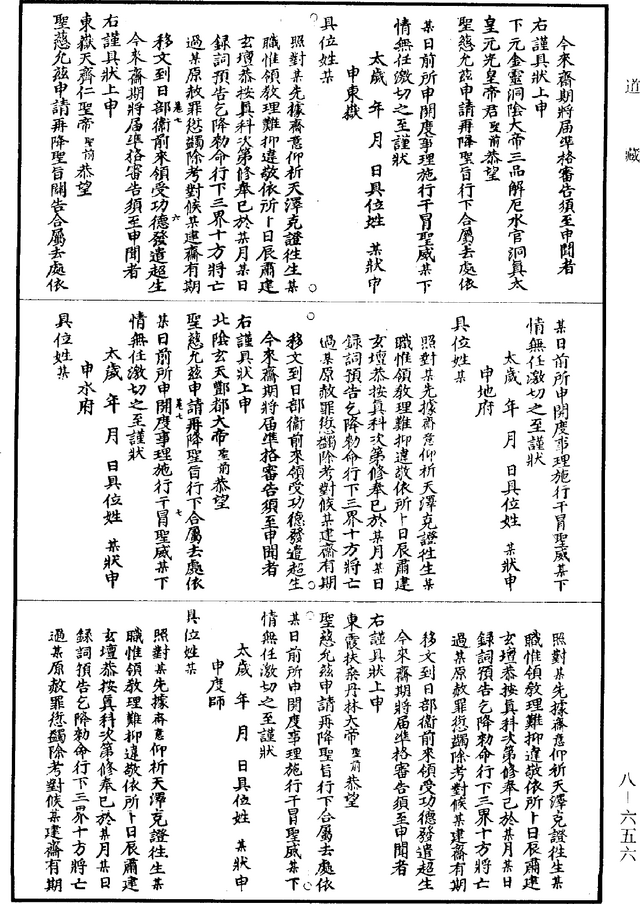 道藏
今來齋期將屆準格審告須至申聞者
右謹具狀上申
下元金靈洞陰大帝三品解厄水官洞真太
皇元光皇帝君聖前恭望
聖慈允茲申請再降聖旨行下合屬去處依
某日前所申開度事理施行干冒聖威某下
情無任激切之至謹狀
太歲 年 月 日具位姓 某狀申
申東嶽
具位姓某
照對某先據齋意仰祈天澤克證徃生某
職惟領教理難抑違敬依所卜日辰肅建
玄壇恭按真科次第修奉已於某月某日
錄詞預告乞降勅命行下三界十方將亡
過某原赦罪愆蠲除考對候某建齋有期
移文到日部衛前來領受功德發遣超生
卷七 六
今來齋期將屆準格審告須至申聞者
右謹具狀上申
東嶽天齊仁聖帝聖前恭望
聖慈允茲申請再降聖旨關告合屬去處依
某日前所申開度事理施行干冒聖威某下
情無任激切之至謹狀
太歲 年 月 日具位姓 某狀申
申地府
具位姓某
照對某先據齋意仰祈天澤克證徃生某
職惟領教理難抑違敬依所卜日辰肅建
玄壇恭按真科次第修奉已於某月某日
錄詞預告乞降勅命行下三界十方將亡
過某原赦罪愆蠲除考對候某建齋有期
移文到日部衛前來領受功德發遣超生
今來齋期將屆準格審告須至申聞者
右謹具狀上申
北陰玄天酆都大帝聖前恭望
聖慈允茲申請再降聖旨行下合屬去處依
卷七 七
某日前所申開度事理施行干冒聖威某下
情無任激切之至謹狀
太歲 年 月 日具位姓 某狀申
申水府
具位姓某
照對某先據齋意仰祈天澤克證徃生某
職惟領教理難抑違敬依所卜日辰肅建
玄壇恭按真科次第修奉已於某月某日
錄詞預告乞降勅命行下三界十方將亡
過某原赦罪愆蠲除考對候某建齋有期
移文到日部衛前來領受功德發遣超生
今來齋期將屆準格審告須至申聞者
右謹具狀上申
東霞扶桑丹林大帝聖前恭望
聖慈允茲申請再降聖旨行下合屬去處依
某日前所申開度事理施行干冒聖威某下
情無任激切之至謹狀
太歲 年 月 日具位姓 某狀申
申度師
具位姓某
照對某先據齋意仰祈天澤克證徃生某
職惟領教理難抑違敬依所卜日辰肅建
玄壇恭按真科次第修奉已於某月某日
錄詞預告乞降勅命行下三界十方將亡
過某原赦罪愆蠲除考對候某建齋有期
八－六五六